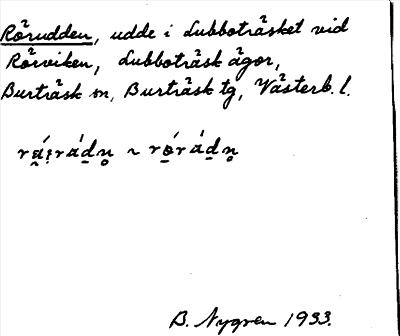 Rörudden, udde i Lubboträsket vid
Rörviken, Lubboträsk ägor,
Burträsk sn, Burträsk tg, Västerb. l.
B. Nygren 1933.